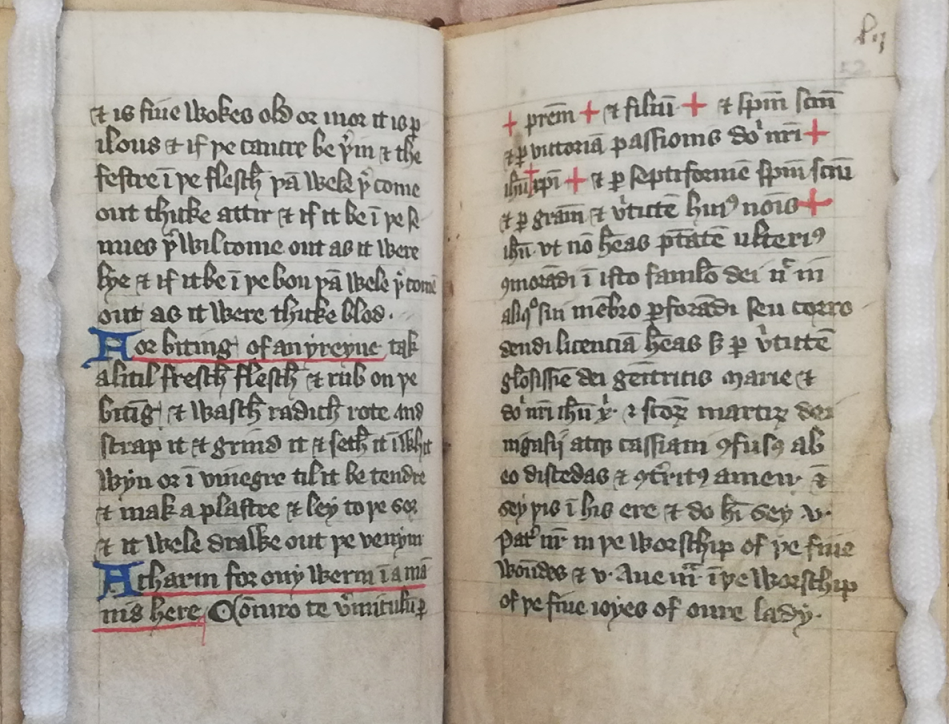 & is fiue wokes old or mor it is p̲
ilous & if þe cancre be þ̉in & the
festre ī þe flesch þā wele þ̉ come
out thicke attir & if it be ī þe se
nues þ̉ wil come out as it were
lye & if it be ī þe bon þā wele þ̉ come
out as it were thicke blod.
For biting of any reyne tak
a litil fresch flesch & rub on þe
bitīg & wasch radich rote and
scrap it & grind it & seth it ī whit
wyn or ī vinegre til it be tendre
& mak a plastre & ley to þe sor
& it wele drawe out þe venym
A charm for ony werm ī a mā
nis here Coniuro te v̉miculū p̲
+ prēm + & filiū + & spm̄ scm̄
& p̲ victoriā passionis do̍ nr̄i +
ihū xpi + & p̲ septiformē spm̄ scm̄
& p̲ gram̄ & v̉tutē huiꝰ nōis +
ihū vt nō hēas ptātē ulteriꝰ
ꝯmorādi ī isto famulo dei n̄
mēbro p̲forādi seu corro
dendi licenciā hēas s̄ p̲ v̉tutē
gl̄osissīe dei genitricis marie &
do̍ nr̄i ihū & scōꝝ martiꝝ dei
atqꝫ cassiani ꝯfusꝰ ab
eo discedas & ꝯtritꝰ amen &
sey þis ī his ere & do hī sey v.
pat̉ nr̄ in þe worschip of þe fiue
wondes & v. Aue m̄ ī þe worschip
of þe fiue ioyes of oure lady.